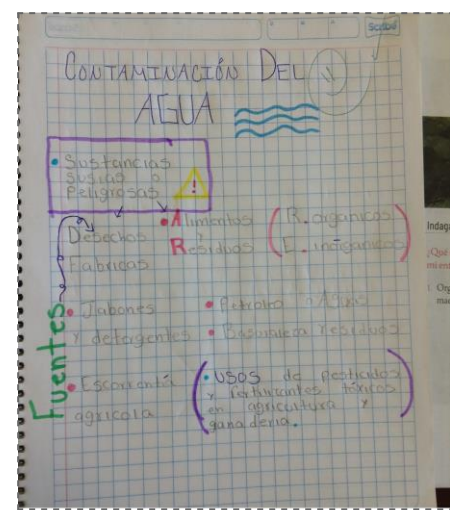 Scribe
CONTAMINACIÓN DEL
AGUA
• Sustancias
sucias o
Peligrosas
!
Desechos
Fabricas
• Alimentos
y
Residuos
(R. organicos
E. inorganicos)
Fuentes
• Jabones
y detergentes
• Petroleo
• Aguas
• Basura
residuos
• Escorrentía
agrícola
(• USOS de Pesticidas
y fertilizantes tóxicos
en agricultura y
ganadería.)
Indaga
¿Qué